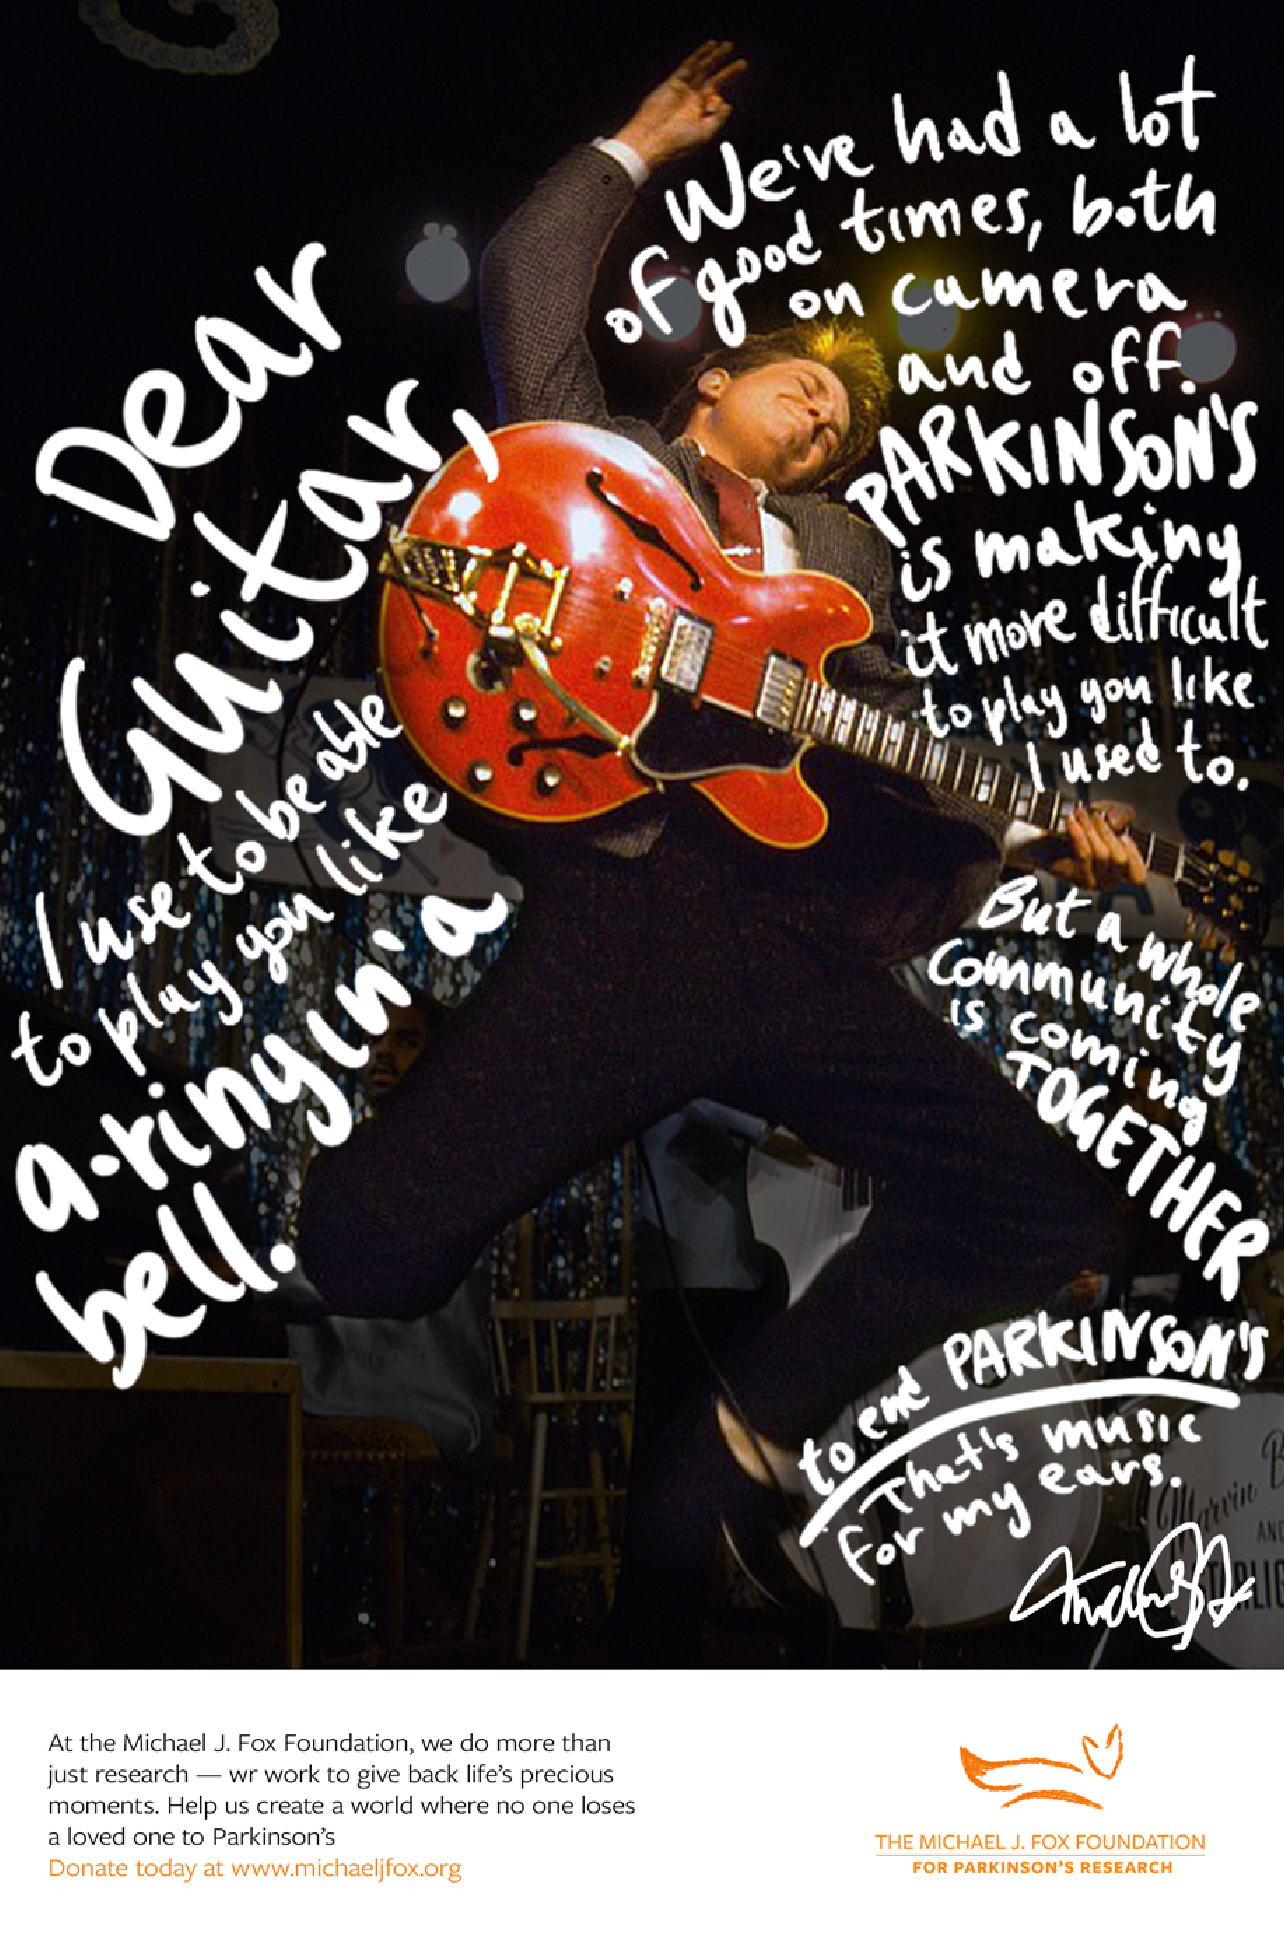 Dear
Guitar,
I use to be able
to play you like
a-ringin' a
bell.
We've had a lot
of good times, both
on camera
and off.
PARKINSON'S
is making
it more difficult
to play you like
I used to.
But a whole
community
is coming
TOGETHER
to end PARKINSON'S
That's music
for my ears.
Marvin B
AND
STARLIG
At the Michael J. Fox Foundation, we do more than
just research — wr work to give back life's precious
moments. Help us create a world where no one loses
a loved one to Parkinson's
Donate today at www.michaeljfox.org
THE MICHAEL J. FOX FOUNDATION
FOR PARKINSON'S RESEARCH